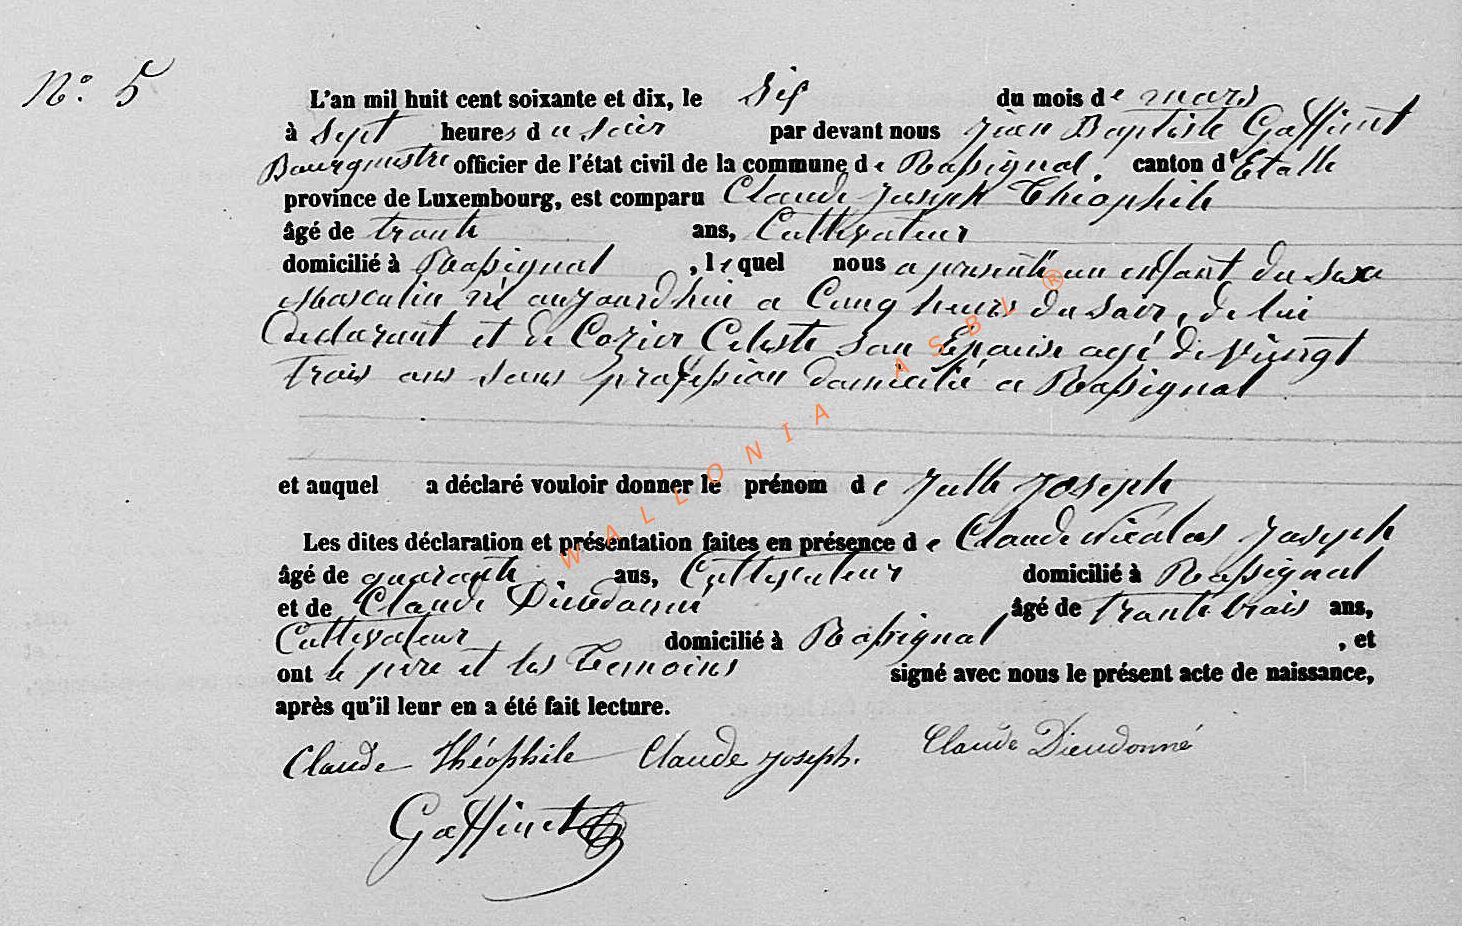 N° 5
L'an mil huit cent soixante et dix, le six du mois de mars
à sept heures du soir par devant nous Jean Baptiste Gaffinet
Bourgmestre officier de l'état civil de la commune de Rossignol, canton d'Etalle
province de Luxembourg, est comparu Claude Joseph Théophile
âgé de trente ans, Cultivateur
domicilié à Rossignol, lequel nous a présenté un enfant du sexe
Masculin né aujourd'hui a Cinq heures du soir, de lui
Declarant et de Cozier Celeste son Epouise agé de vingt
trois ans sans profession domicilié a Rossignol
et auquel a déclaré vouloir donner le prénom de Julle Joseph
Les dites déclaration et présentation faites en présence de Claude Nicolas Joseph
âgé de quarante ans, Cultivateur domicilié à Rossignol
et de Claude Dieudonné âgé de trante trois ans,
Cultivateur domicilié à Rossignol, et
ont le pere et les Temoins signé avec nous le présent acte de naissance,
après qu'il leur en a été fait lecture.
Claude Théophile Claude Joseph. Claude Dieudonné
Gaffinet
WALLONIA ASBL ®